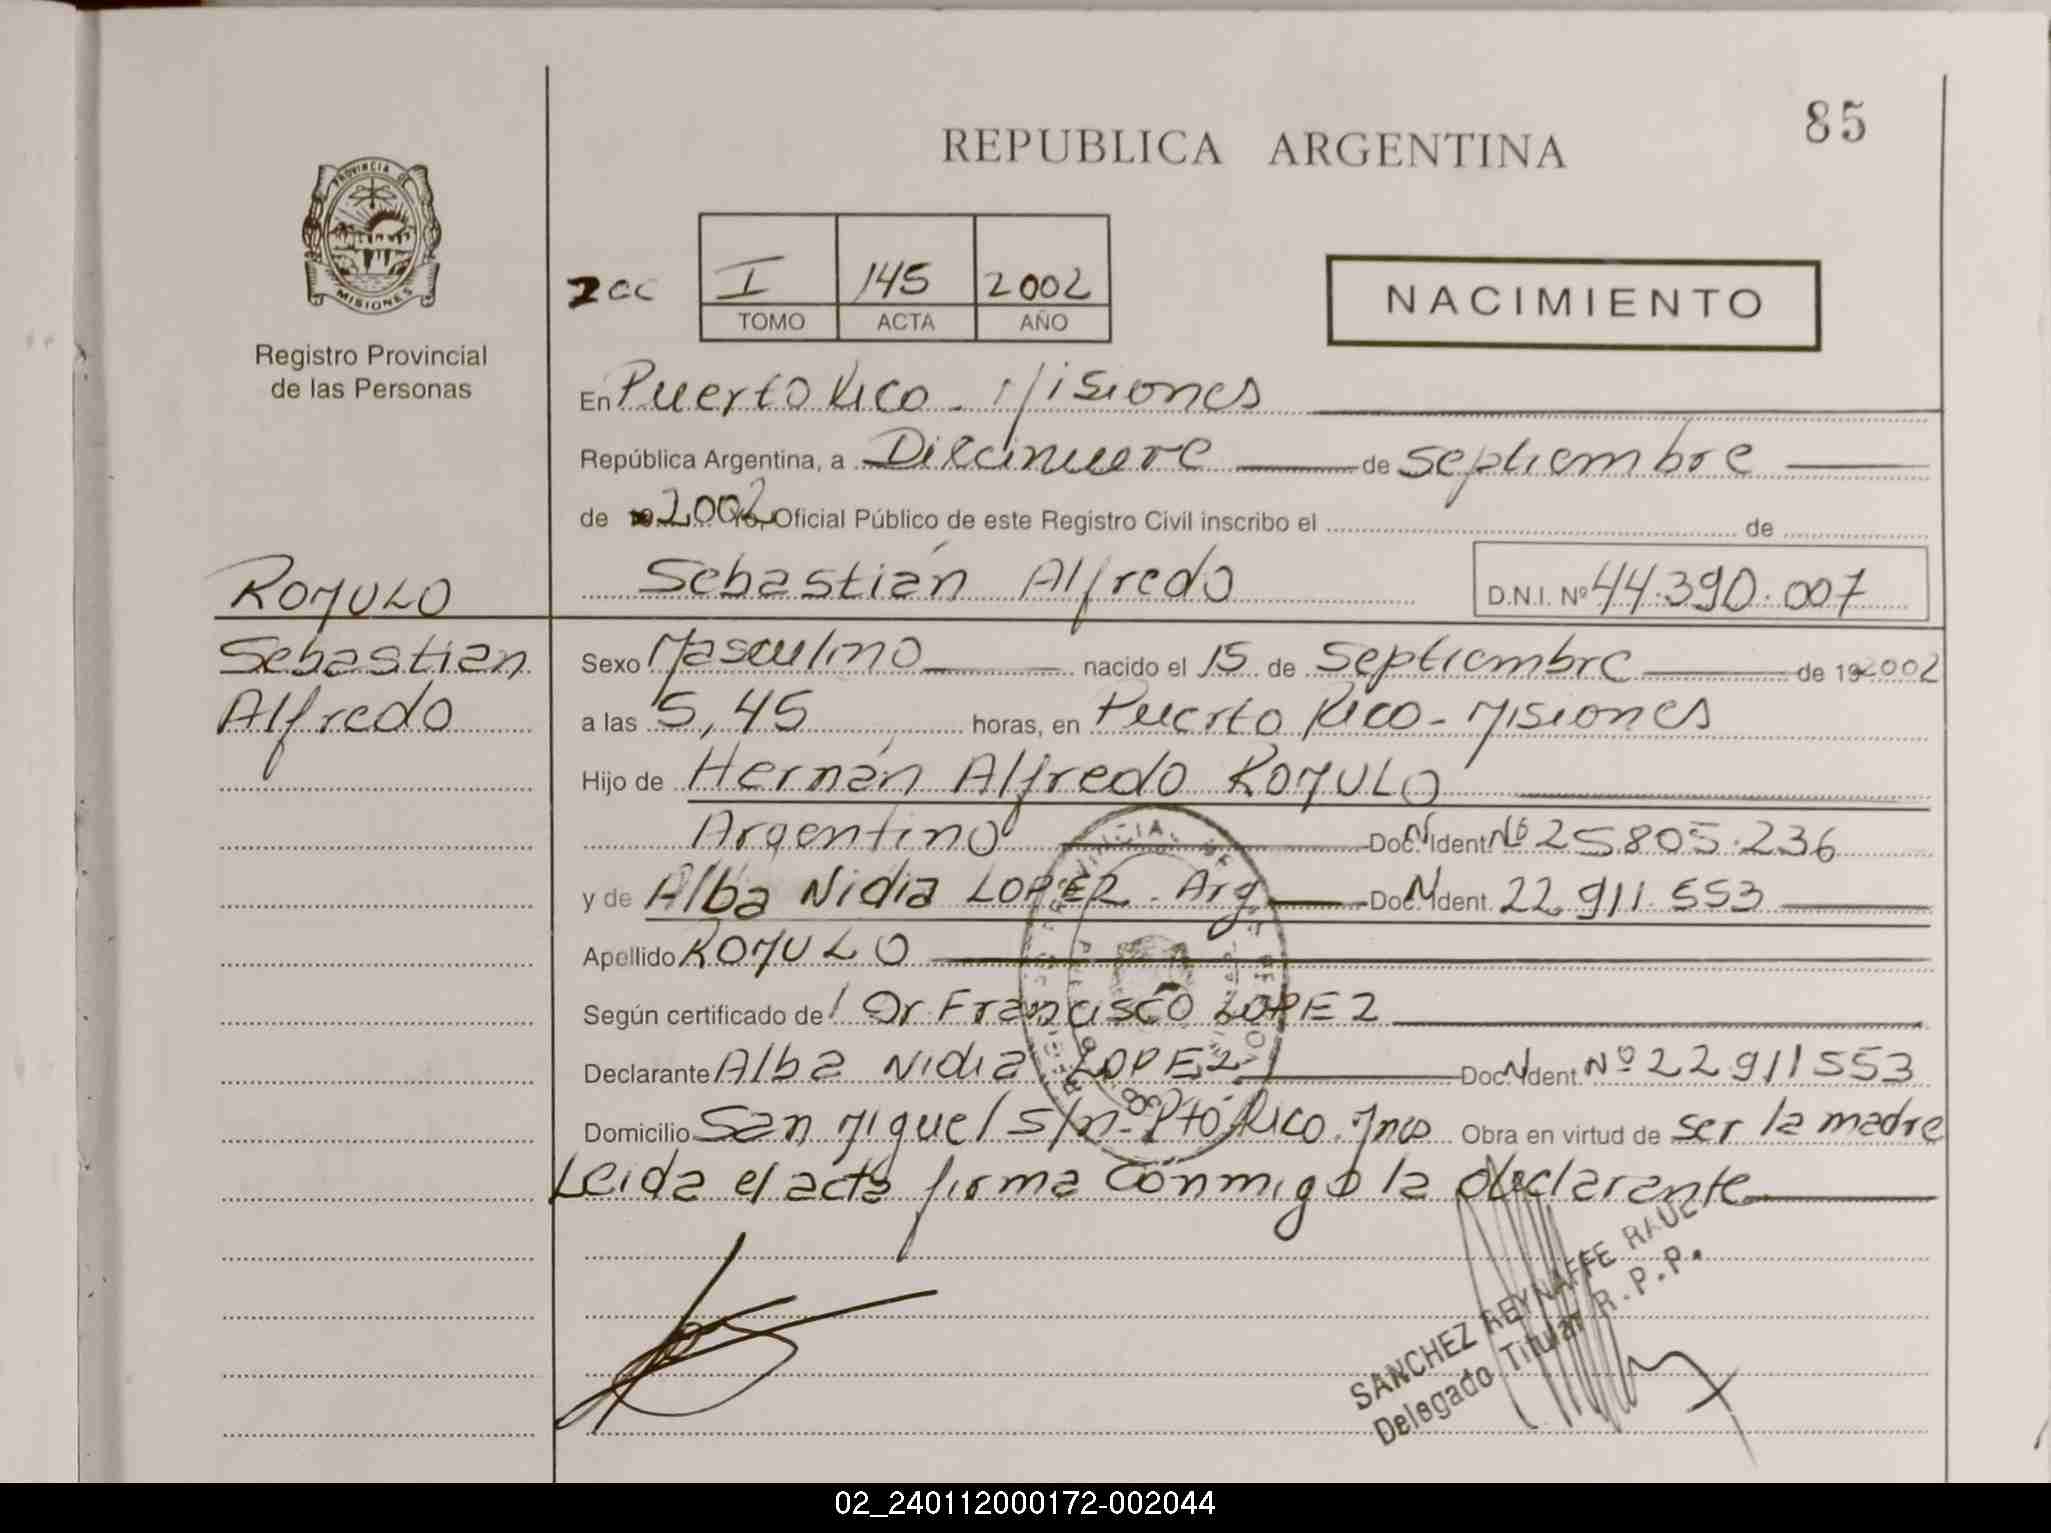 85
REPUBLICA ARGENTINA
PROVINCIA DE
MISIONES
Registro Provincial
de las Personas
I 145 2002
TOMO ACTA AÑO
NACIMIENTO
En Puerto Rico - Misiones
República Argentina, a Diecinueve de septiembre
de 2002 Yo, Oficial Público de este Registro Civil inscribo el de
Sebastián Alfredo D.N.I. Nº 44.390.007
ROMULO
Sebastian
Alfredo
Sexo Masculino nacido el 15 de Septiembre de 192002
a las 5,45 horas, en Puerto Rico - Misiones
Hijo de Hernán Alfredo ROMULO
Argentino Doc. N Ident. Nº 25805.236
y de Alba Nidia LOPEZ - Arg Doc. N Ident. 22.911.553
Apellido ROMULO
Según certificado del Dr. Francisco LOPEZ
Declarante Alba Nidia LOPEZ Doc. N Ident. Nº 22911553
Domicilio San Miguel s/nº Ptó Rico. Mnes Obra en virtud de ser la madre
Leida el acta firma conmigo la declarante
SANCHEZ REYNAFFE RAUL
Delegado Titular R.P.P.
02_240112000172-002044